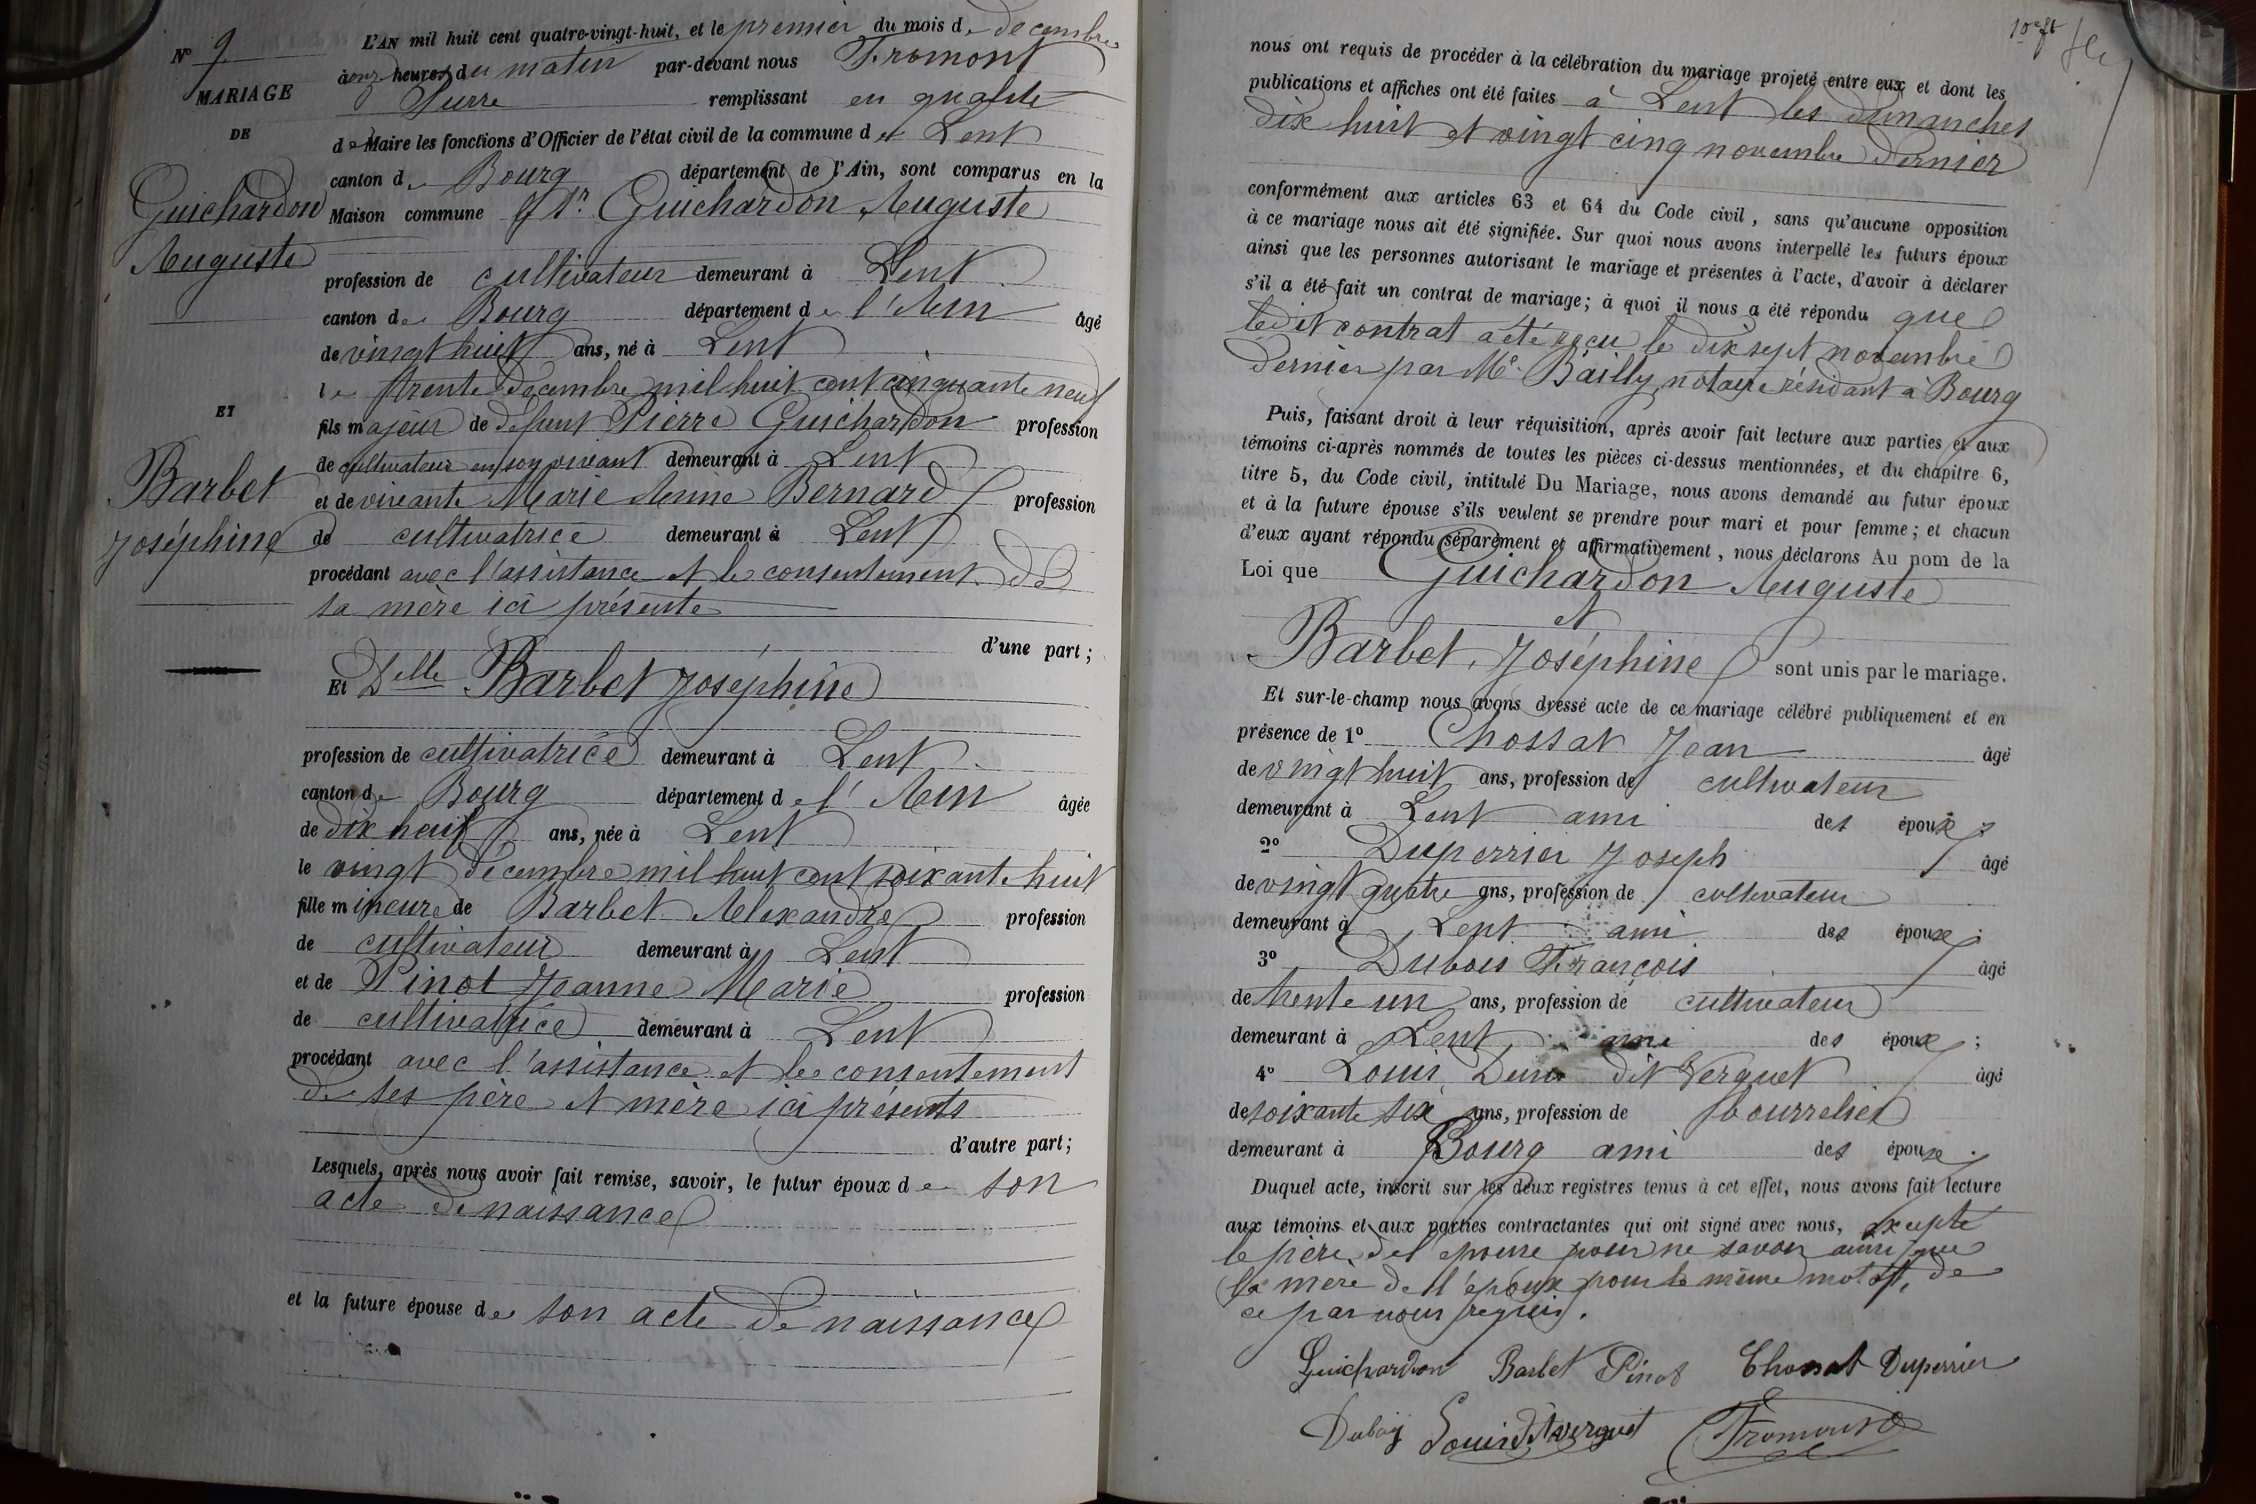 N° 9
MARIAGE
DE
Guichardon
Auguste
ET
Barbet
Joséphine
L'AN mil huit cent quatre-vingt-huit, et le premier du mois de décembre
à onze heures du matin par-devant nous Fromont
Pierre remplissant en qualité
de Maire les fonctions d'Officier de l'état civil de la commune de Lent
canton de Bourg département de l'Ain, sont comparus en la
Maison commune Sr. Guichardon Auguste
profession de cultivateur demeurant à Lent
canton de Bourg département de l'Ain âgé
de vingt huit ans, né à Lent
le trente décembre mil huit cent cinquante neuf
fils majeur de défunt Pierre Guichardon profession
de cultivateur en son vivant demeurant à Lent
et de vivante Marie Anne Bernard profession
de cultivatrice demeurant à Lent
procédant avec l'assistance et le consentement de
sa mère ici présente
d'une part;
Et Delle Barbet Joséphine
profession de cultivatrice demeurant à Lent
canton de Bourg département de l'Ain âgée
de dix neuf ans, née à Lent
le vingt décembre mil huit cent soixante huit
fille mineure de Barbet Alexandre profession
de cultivateur demeurant à Lent
et de Pinot Jeanne Marie profession
de cultivatrice demeurant à Lent
procédant avec l'assistance et le consentement
de ses père et mère ici présents
d'autre part;
Lesquels, après nous avoir fait remise, savoir, le futur époux de son
acte de naissance
et la future épouse de son acte de naissance
nous ont requis de procéder à la célébration du mariage projeté entre eux et dont les
publications et affiches ont été faites à Lent les dimanches
dix huit et vingt cinq novembre dernier
conformément aux articles 63 et 64 du Code civil, sans qu'aucune opposition
à ce mariage nous ait été signifiée. Sur quoi nous avons interpellé les futurs époux
ainsi que les personnes autorisant le mariage et présentes à l'acte, d'avoir à déclarer
s'il a été fait un contrat de mariage; à quoi il nous a été répondu que
ledit contrat a été reçu le dix sept novembre
dernier par Me. Bailly notaire résidant à Bourg
Puis, faisant droit à leur réquisition, après avoir fait lecture aux parties et aux
témoins ci-après nommés de toutes les pièces ci-dessus mentionnées, et du chapitre 6,
titre 5, du Code civil, intitulé Du Mariage, nous avons demandé au futur époux
et à la future épouse s'ils veulent se prendre pour mari et pour femme; et chacun
d'eux ayant répondu séparément et affirmativement, nous déclarons Au nom de la
Loi que Guichardon Auguste
et
Barbet, Joséphine sont unis par le mariage.
Et sur-le-champ nous avons dressé acte de ce mariage célébré publiquement et en
présence de 1° Chossat Jean âgé
de vingt huit ans, profession de cultivateur
demeurant à Lent ami des époux;
2° Duperrier Joseph âgé
de vingt quatre ans, profession de cultivateur
demeurant à Lent ami des époux;
3° Dubois François âgé
de trente un ans, profession de cultivateur
demeurant à Lent ami des époux;
4° Louis Denis dit Verguet âgé
de soixante six ans, profession de bourrelier
demeurant à Bourg ami des époux.
Duquel acte, inscrit sur les deux registres tenus à cet effet, nous avons fait lecture
aux témoins et aux parties contractantes qui ont signé avec nous, excepté
le père de l'épouse pour ne savoir ainsi que
la mère de l'époux pour le même motif, de
ce par nous requis.
Guichardon Barbet Pinot Chossat Duperrier
Dubois Louis dit verguet Fromont